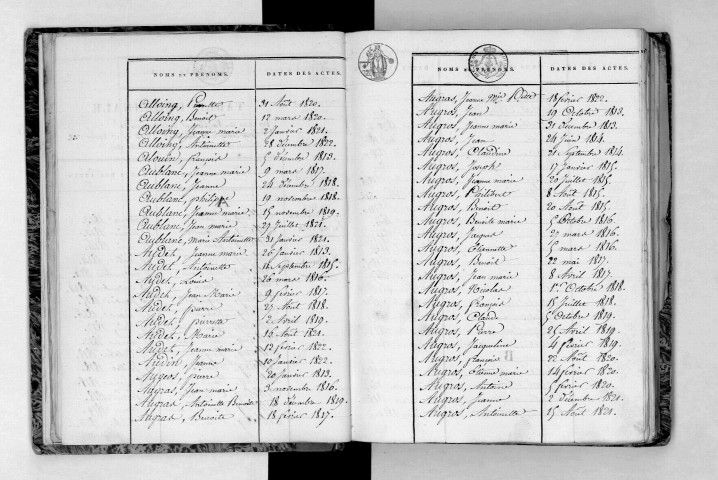 NOMS ET PRÉNOMS. DATES DES ACTES.
Alloing, Pierrette 31 Août 1820.
Alloing, Benoît 12 mars 1820.
Alloing, Jeanne marie 2 Janvier 1821.
Alloing, Antoinette 28 Décembre 1822.
Alouin, françois 5 Décembre 1813.
Aublanc, Jeanne marie 9 mars 1817.
Aublanc, Jeanne 24 Décembre 1818.
Aublanc, philippe 19 novembre 1818.
Aublanc, Jeanne marie 15 novembre 1819.
Aublanc, Jean marie 29 Juillet 1821.
Aublanc, marie Antoinette 31 Janvier 1821.
Audet, Jeanne marie 26 Janvier 1813.
Audet, Antoinette 14 Septembre 1815.
Audet, Louise 26 mars 1816.
Audet, Jean Marie 9 février 1817.
Audet, pierre 27 Août 1818.
Audet, pierrette 2 Avril 1819.
Audet, Marie 16 Août 1821.
Audet, Jeanne marie 12 février 1822.
Audin, Jeanne 10 Janvier 1822.
pierre 20 Janvier 1813.
Augras, Jean marie 3 novembre 1816.
Augras, Antoinette Benoite 18 Décembre 1819.
Augras, Benoite 18 février 1817.
NOMS ET PRÉNOMS. DATES DES ACTES.
Augros, Jeanne Mie 18 février 1822.
Augros, Jean 19 Octobre 1813.
Augros, Jeanne marie 31 Décembre 1813.
Augros, Jean 24 Juin 1814.
Augros, Claudine 21 Septembre 1814.
Augros, Joseph 17 Janvier 1815.
Augros, Jeanne marie 20 Juillet 1815.
Augros, Philibert 8 Août 1815.
Augros, Benoît 20 Août 1815.
Augros, Benoite marie 5 Octobre 1816.
Augros, Jacques 27 mars 1816.
Augros, Pierrette 5 mars 1816.
Augros, Benoît 22 mai 1817.
Augros, Jean marie 8 Avril 1817.
Augros, Nicolas 1er Octobre 1818.
Augros, françois 15 Juillet 1818.
Augros, Claude 5 Octobre 1819.
Augros, Pierre 25 Avril 1819.
Augros, Jacqueline 4 février 1819.
Augros, françois 22 Août 1820.
Augros, Etienne marie 14 février 1820.
Augros, Antoine 5 février 1820.
Augros, Jeanne 2 Décembre 1821.
Augros, Antoinette 15 Août 1821.